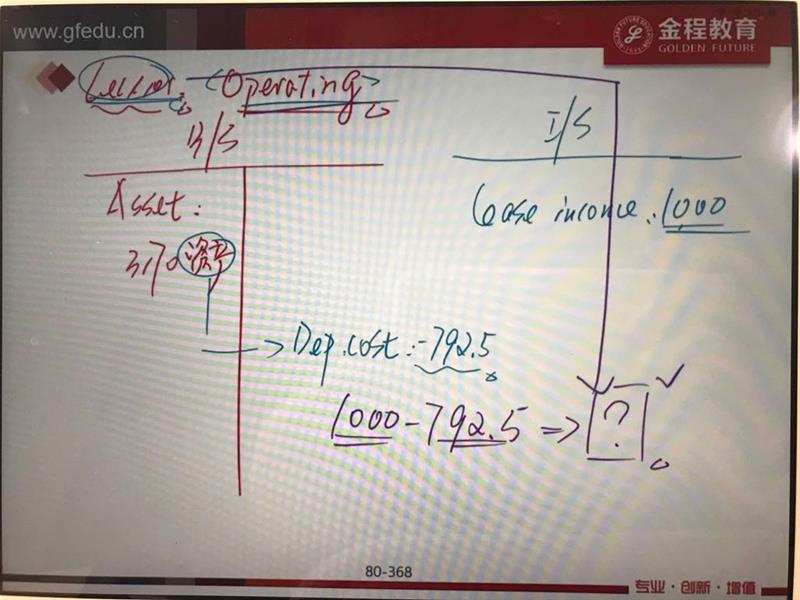 www.gfedu.cn
金程教育
GOLDEN FUTURE
Lessor: <Operating>
B/S
I/S
Asset:
Lease income: 1000
3170 资产
Dep. cost: -792.5
1000 - 792.5 => ?
80-368
专业·创新·增值